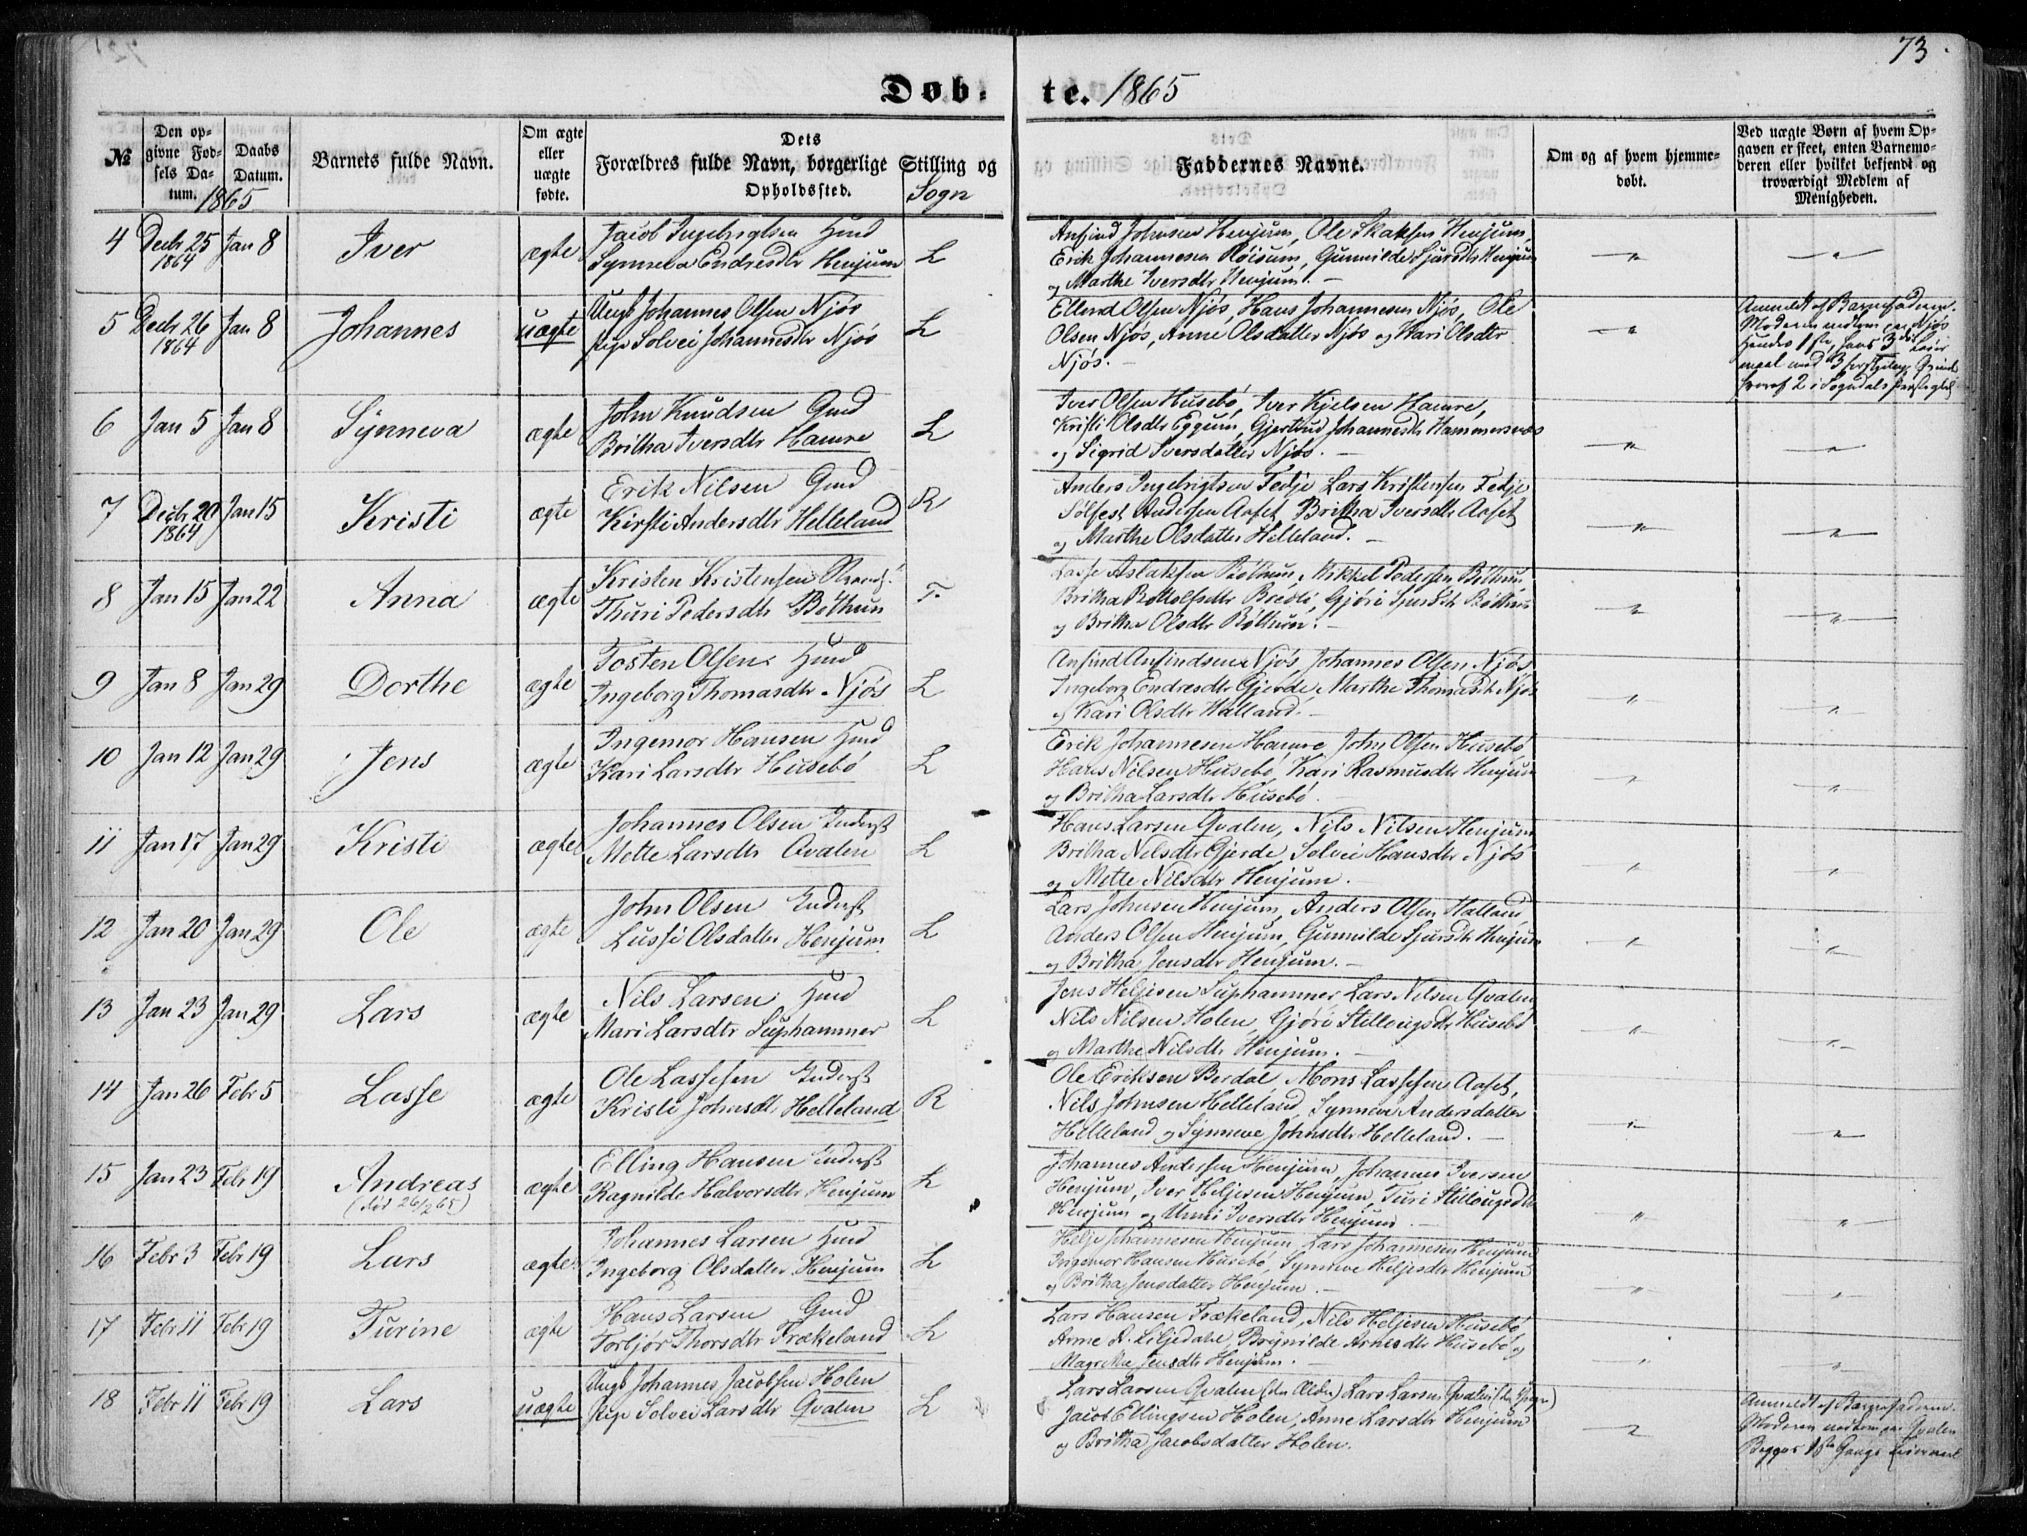 73
Døb-te. 1865
№
Den opgivne Fødsels Datum.
1865
Daabs Datum.
Barnets fulde Navn.
Om ægte eller uægte fødte.
Dets Forældres fulde Navn, borgerlige Stilling og Opholdssted.
Sogn
Faddernes Navne.
Om og af hvem hjemmedøbt.
Ved uægte Børn af hvem Opgaven er skeet, enten Barnemoderen eller hvilket bekjendt og troværdigt Medlem af Menigheden.
4 Decbr 25 1864 Jan 8 Iver ægte
Jacob Ingebrigtsen Hmd
Synneva Endresdtr Henjum L
Anfind Johnsen Henjum, Ole Henjum,
Erik Johannesen Røisum, Gunnilde Sjursdtr Henjum
og Marthe Iversdtr Henjum.
5 Decbr 26 1864 Jan 8 Johannes uægte
Ungk Johannes Olsen Njøs
Pige Solvei Johannesdtr Njøs L
Ellend Olsen Njøs, Hans Johannesen Njøs, Ole
Olsen Njøs, Anne Olsdatter Njøs og Kari Olsdtr
Njøs.
Anmeldt af Barnefaderen.
6 Jan 5 Jan 8 Synneva ægte
John Knudsen Gmd
Britha Iversdtr Hamre L
Iver Olsen Husebø, Iver Kjelsen Hamre,
Kristi Olsdtr Eggum, Gjertrud Johannesdtr Hammersnæs
og Sigrid Iversdatter Njøs.
7 Decbr 20 1864 Jan 15 Kristi ægte
Erik Nilsen Gmd
Kirsti Andersdtr Helleland R
Anders Ingebrigtsen Fedje, Lars Kristensen Fedje
Sølfest Andersen Aafet, Britha Iversdtr Aafet
og Marthe Olsdatter Helleland.
8 Jan 15 Jan 22 Anna ægte
Kristen Kristensen
Thuri Pedersdtr Bøthun F.
Lasse Aslaksen Bøthun, Mikkel Pedersen Bøthun
Britha Bottolfsdtr Gjøri Sjursdtr Bøthun
og Britha Olsdtr Bøthun.
9 Jan 8 Jan 29 Dorthe ægte
Tosten Olsen Hmd
Ingeborg Thomasdtr Njøs L
Anfind Anfindsen Njøs, Johannes Olsen Njøs
Ingeborg Endresdtr Gjerde, Marthe Thomasdtr Njøs
og Kari Olsdtr Halland.
10 Jan 12 Jan 29 Jens ægte
Ingemor Hansen Hmd
Kari Larsdtr Husebø L
Erik Johannesen Hamre, John Olsen Husebø
Hans Nilsen Husebø, Kari Rasmusdtr Henjum
og Britha Larsdtr Husebø.
11 Jan 17 Jan 29 Kristi ægte
Johannes Olsen Inderst
Mette Larsdtr Qvalen L
Hans Larsen Qvalen, Nils Nilsen Henjum
Britha Nilsdtr Gjerde, Solvei Hansdtr Njøs
og Mette Nilsdtr Henjum.
12 Jan 20 Jan 29 Ole ægte
John Olsen Inderst
Lussi Olsdatter Henjum L
Lars Johnsen Henjum, Anders Olsen Halland,
Anders Olsen Henjum, Gunnilde Sjursdtr Henjum
og Britha Jensdtr Henjum.
13 Jan 23 Jan 29 Lars ægte
Nils Larsen Hmd
Mari Larsdtr Suphammer L
Jens Heljesen Suphammer, Lars Nilsen Qvalen
Nils Nilsen Holen, Gjøri Stillougsdtr Husebø
og Marthe Nilsdtr Henjum.
14 Jan 26 Febr 5 Lasse ægte
Ole Lassesen Inderst
Kristi Johnsdtr Helleland R
Ole Eriksen Berdal, Mons Lassesen Aafet,
Nils Johnsen Helleland, Synneve Andersdatter
Helleland og Synneve Johnsdtr Helleland.
15 Jan 23 Febr 19 Andreas
(død 26/2 65) ægte
Elling Hansen Inderst
Ragnilde Halvorsdtr Henjum L
Johannes Andersen Henjum, Johannes Iversen
Henjum, Iver Heljesen Henjum, Turi Stillougsdtr
Henjum og Unni Iversdtr Henjum
16 Febr 3 Febr 19 Lars ægte
Johannes Larsen Hmd
Ingeborg Olsdatter Henjum L
Helje Johannesen Henjum, Lars Johannesen Henjum
Ingemor Hansen Husebø, Synneve Heljesdtr Henjum
og Britha Jensdatter Henjum.
17 Febr 11 Febr 19 Turine ægte
Hans Larsen Gmd
Torbjør Thorsdtr Frækeland L
Lars Hansen Frækeland, Nils Heljesen Husebø
Arne A. Liljedahl, Brynilde Arnesdtr Husebø og
Magrethe Jensdtr Henjum.
18 Febr 11 Febr 19 Lars uægte
Ungk Johannes Jacobsen Holen
Pige Solvei Larsdtr Qvalen L
Lars Larsen Qvalen (den Ældre) Lars Larsen Qvalen (d. Yngre)
Jacob Ellingsen Holen, Anne Larsdtr Henjum
og Britha Jacobsdatter Holen.
Anmeldt af Barnefaderen.
Begges 1ste Gangs Leiermaal